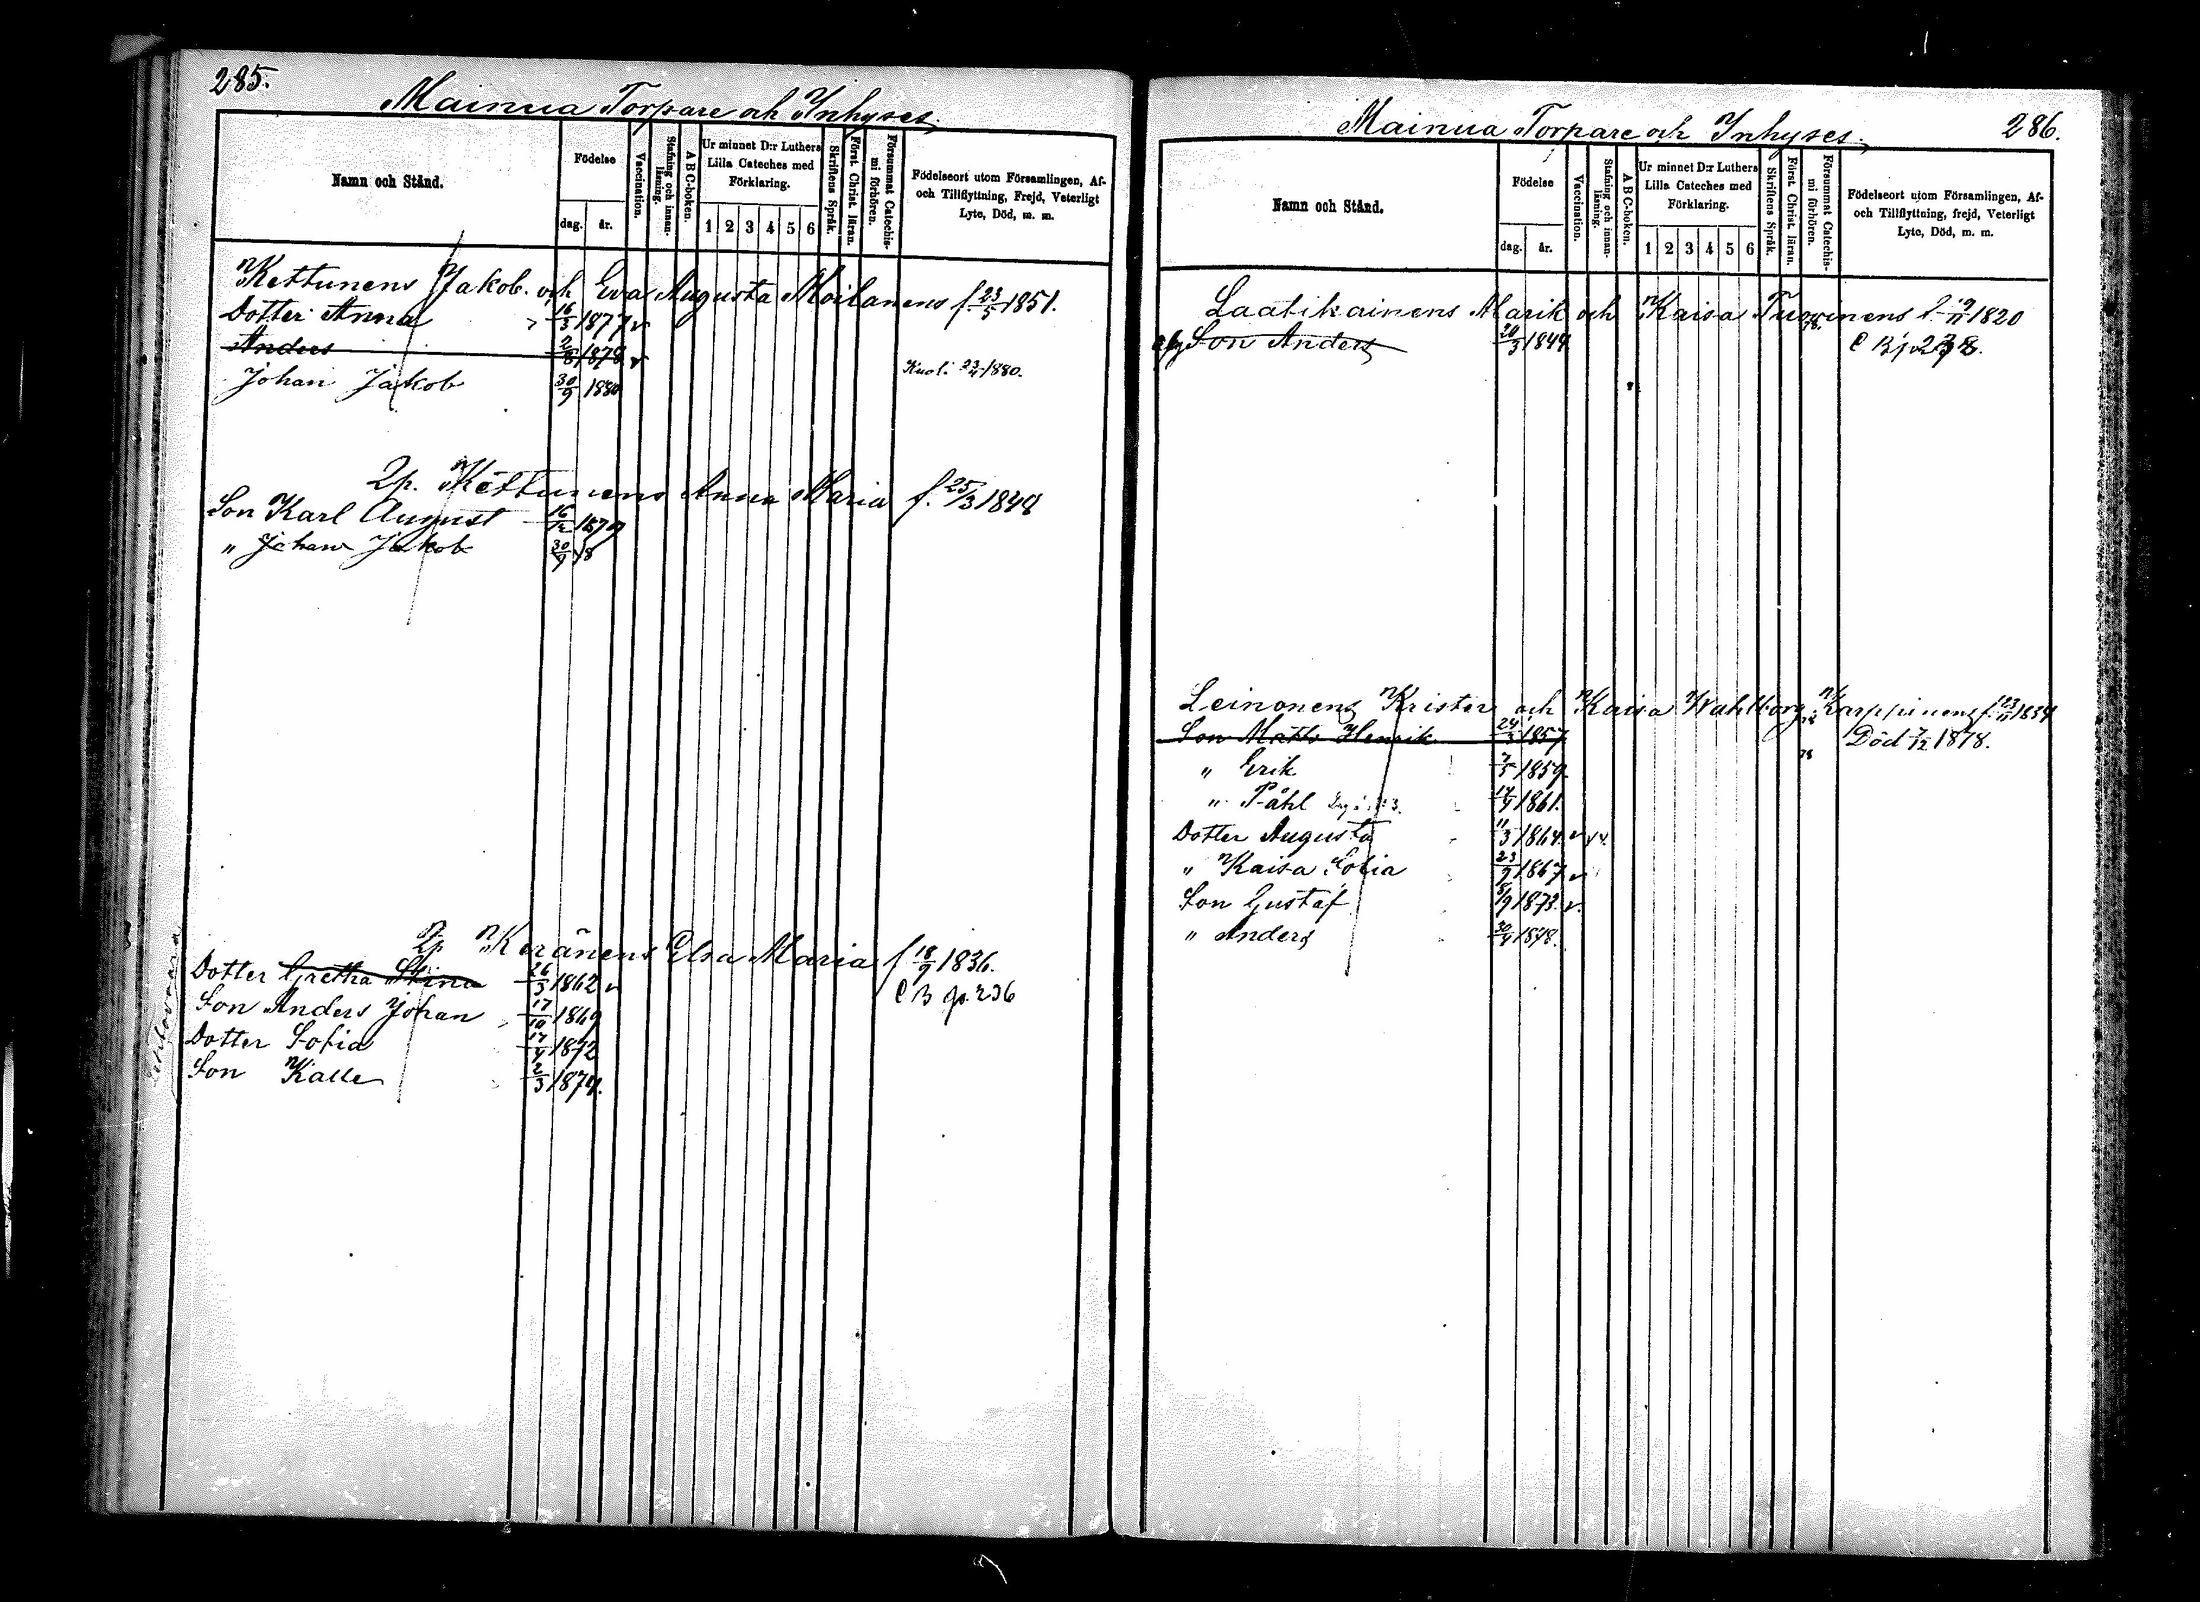 285.
Mainua Torpare och Inhyses.
Namn och Stånd.
Födelse
dag. år.
Vaccination.
Stafning och innan-läsning.
A B C-boken.
Ur minnet D:r Luthers
Lilla Cateches med
Förklaring.
1 2 3 4 5 6
Skriftens Språk.
Först. Christ. läran.
Försummat Catechis-
mi förhören.
Födelseort utom Församlingen, Af-
och Tillflyttning, Frejd, Veterligt
Lyte, Död, m. m.
Kettunens Jakob och Eva Augusta Moilanens f. 23/5 1851.
Dotter Anna 16/3 1877 v
Anders 2/8 1878 v
Kuoli 23/4 1880.
Johan Jakob 30/9 1880
2p. Kettunens Anna Maria f. 25/3 1848
Son Karl August 16/12 1879
" Johan Jakob 30/9
2p Keränens Elsa Maria f 18/9 1836.
Dotter Gretha Stina 26/3 1862 v
C B p. 236
Son Anders Johan 17/10 1869
Dotter Sofia 17/4 1872
Son Kalle 2/3 1879.
Mainua Torpare och Inhyses.
286.
Namn och Stånd.
Födelse
dag. år.
Vaccination.
Stafning och innan-läsning.
A B C-boken.
Ur minnet D:r Luthers
Lilla Cateches med
Förklaring.
1 2 3 4 5 6
Skriftens Språk.
Först Christ. läran.
Försummat Catechis-
mi förhören.
Födelseort utom Församlingen, Af-
och Tillflyttning, frejd, Veterligt
Lyte, Död, m. m.
Laatikainens Marik och Kaisa Tuovinens f. 19/11 1820
Son Anders 24/3 1849
Leinonens Krister och Kaisa Wahlborg Karppinens f. 23/11 1834
Son Matts Henrik 1857
Död 7/12 1878.
78
" Erik 1859
" Påhl 1861.
Dotter Augusta 11/3 1864 v
" Kaisa Sofia 23/9 1867 v
Son Gustaf 1873. v.
" Anders 30/4 1878.